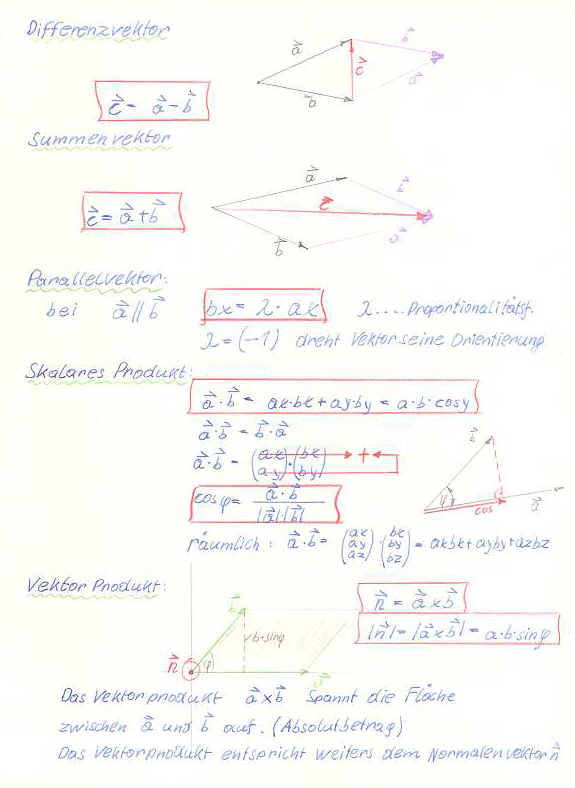 Differenzvektor
a⃗ b⃗
c⃗
b⃗ a⃗
c⃗ = a⃗ - b⃗
Summenvektor
a⃗ b⃗
c⃗ = a⃗ + b⃗ c⃗
b⃗ a⃗
Parallelvektor:
bei a⃗ || b⃗ bx = λ · ax λ .... Proportionalitätsf.
λ = (-1) dreht Vektor seine Orientierung
Skalares Produkt:
a⃗ · b⃗ = ax·bx + ay·by = a·b·cosφ
a⃗ · b⃗ = b⃗ · a⃗
a⃗ · b⃗ = (ax ay) · (bx by) +
b⃗
φ
cos a⃗
cosφ = a⃗ · b⃗ / |a⃗|·|b⃗|
räumlich : a⃗ · b⃗ = (ax ay az) · (bx by bz) = axbx + ayby + azbz
Vektor Produkt:
b⃗ n⃗ = a⃗ x b⃗
b·sinφ |n⃗| = |a⃗ x b⃗| = a·b·sinφ
n⃗ φ a⃗
Das Vektorprodukt a⃗ x b⃗ spannt die Fläche
zwischen a⃗ und b⃗ auf. (Absolutbetrag)
Das Vektorprodukt entspricht weiters dem Normalenvektor n⃗